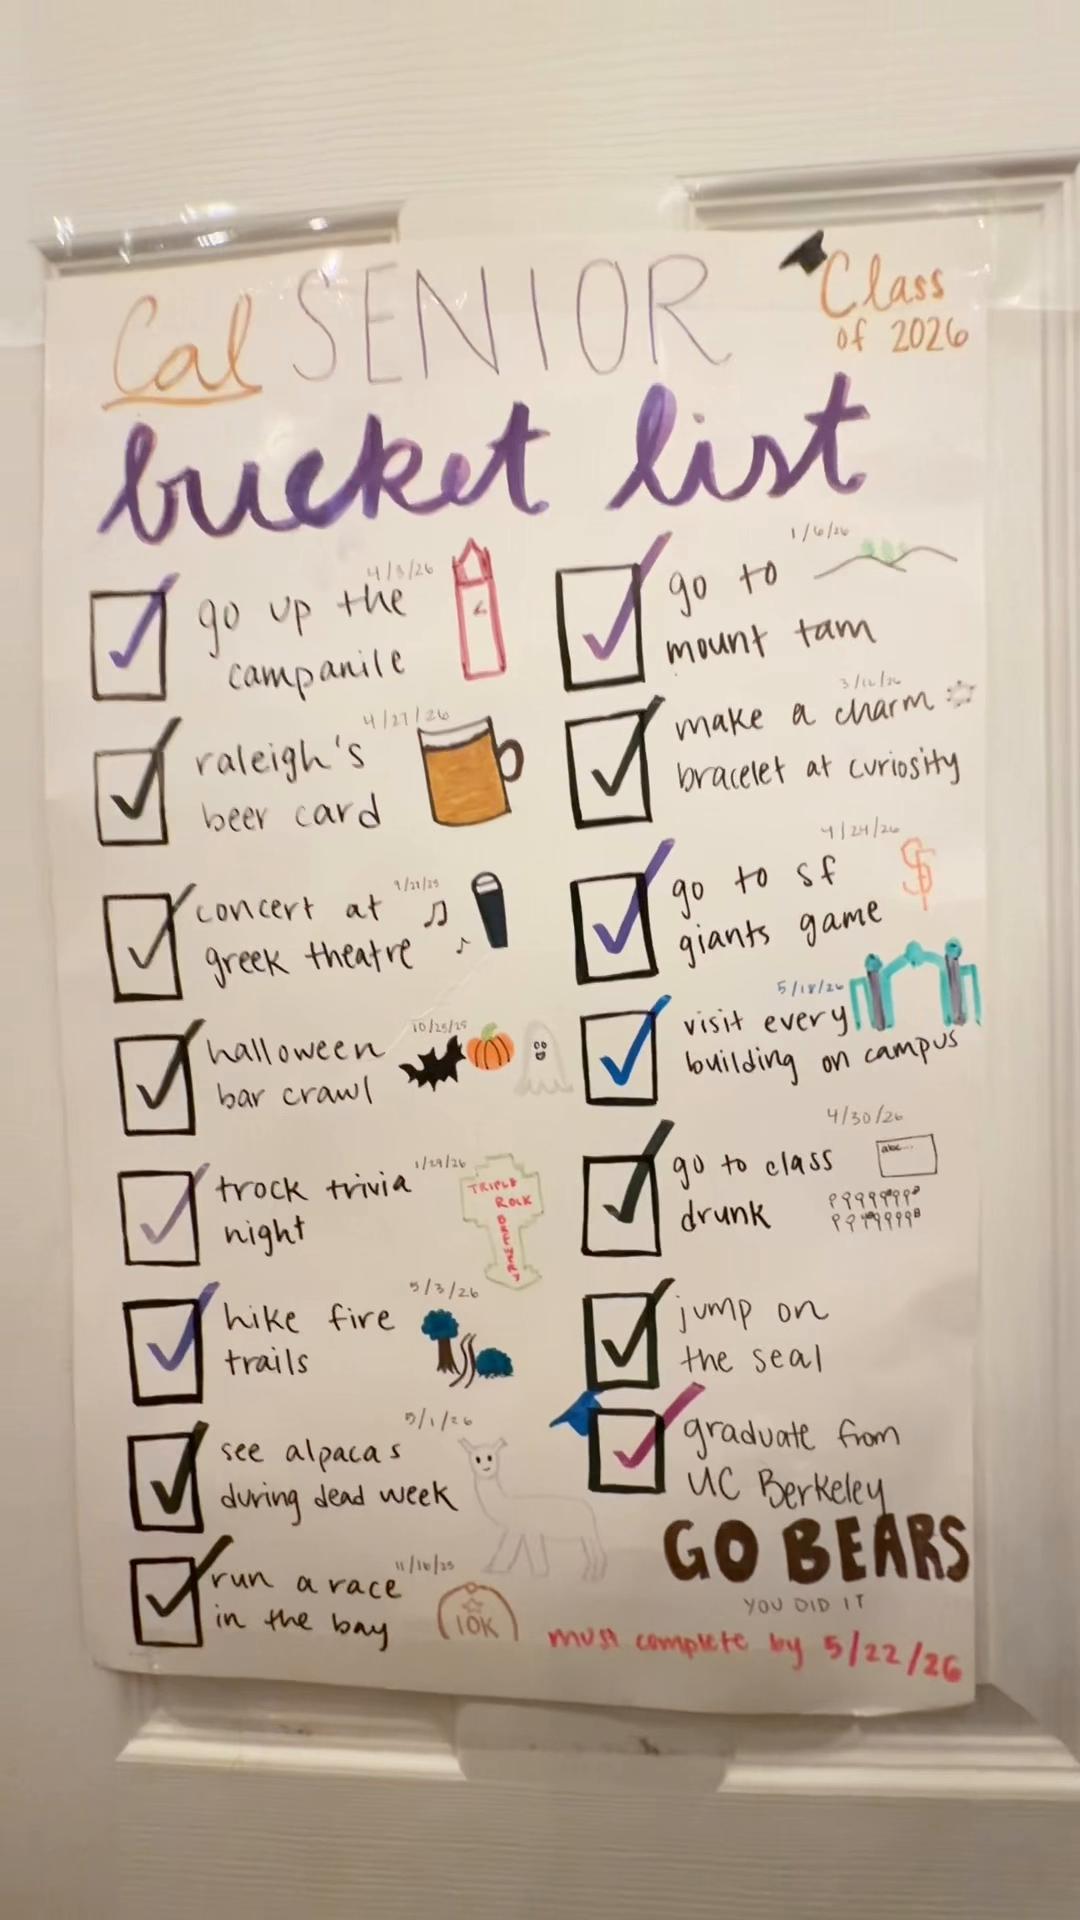 Cal SENIOR
Class
of 2026
bucket list
4/3/26
go up the
campanile
4/27/26
raleigh's
beer card
concert at
greek theatre
10/25/25
halloween
bar crawl
1/29/26
trock trivia
night
TRIPLE
ROCK
BREWERY
5/3/26
hike fire
trails
5/1/26
see alpacas
during dead week
11/16/25
run a race
in the bay
10K
1/6/26
go to
mount tam
make a charm
bracelet at curiosity
4/24/26
go to sf
giants game
$
5/18/26
visit every
building on campus
4/30/26
go to class
drunk
abc...
jump on
the seal
graduate from
UC Berkeley
GO BEARS
YOU DID IT
must complete by 5/22/26